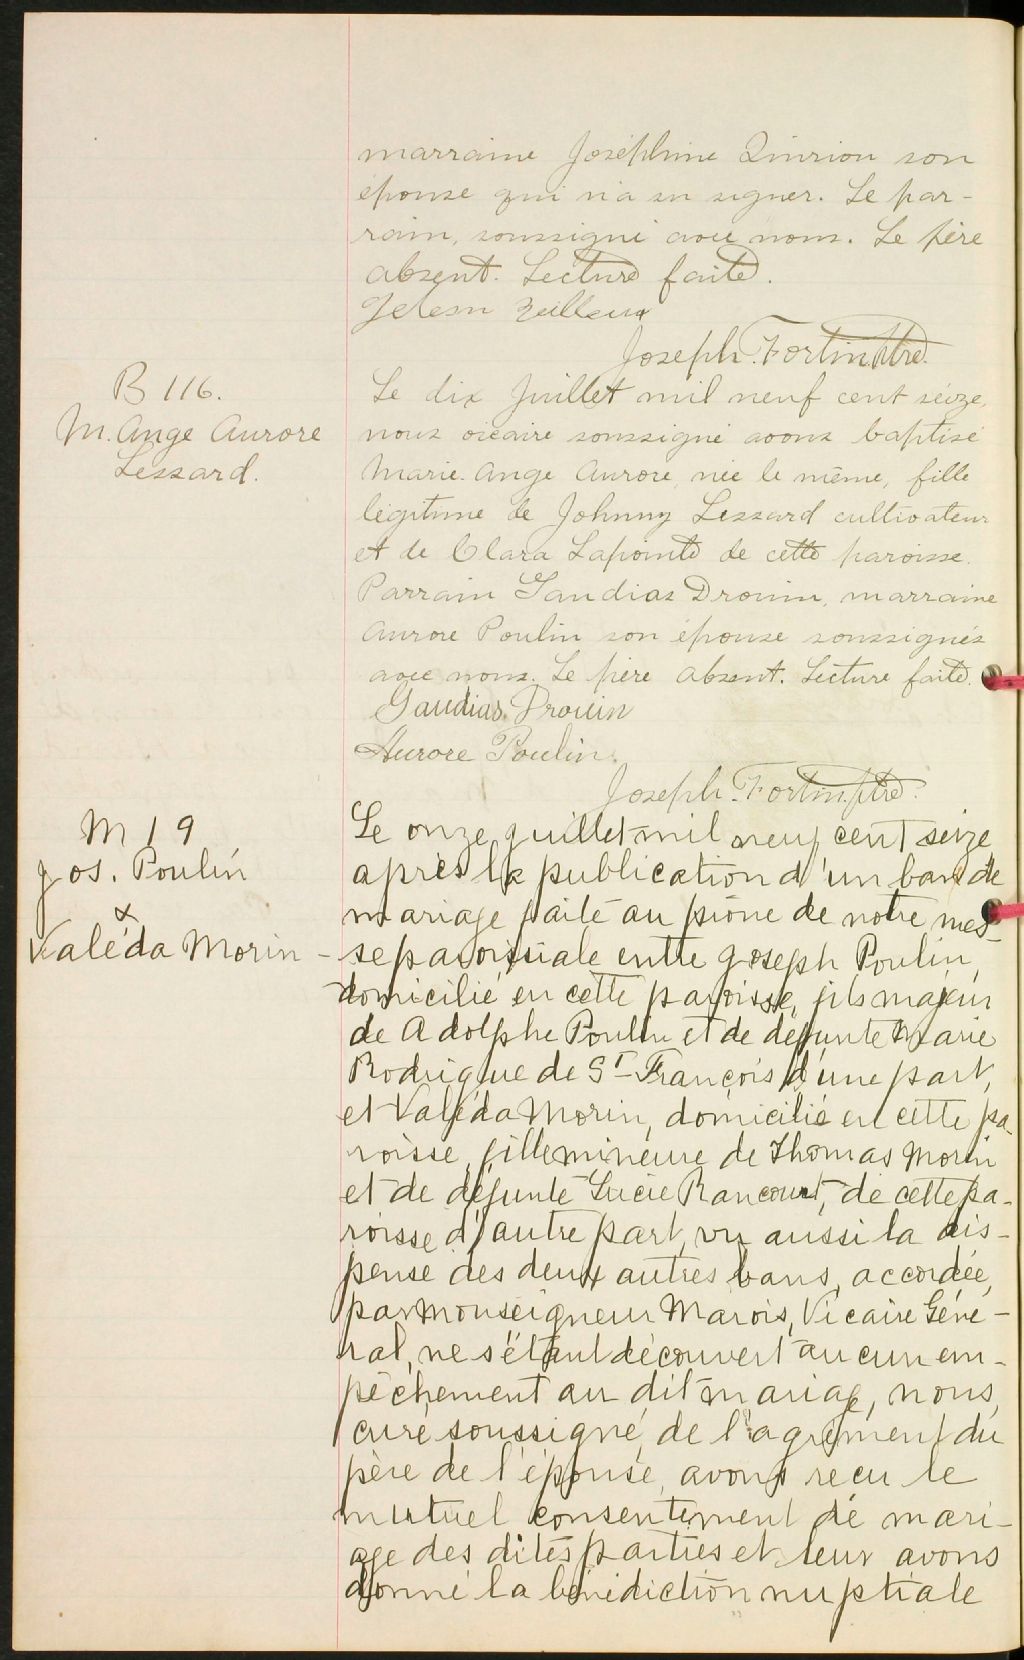 marraine Joséphine Quirion son
épouse qui n'a su signer. Le par-
rain, soussigné avec nous. Le père
absent. Lecture faite.
Veilleux
Joseph Fortin Ptre.
B 116.
M. Ange Aurore
Lessard.
Le dix Juillet mil neuf cent seize,
nous vicaire soussigné avons baptisé
Marie Ange Aurore, née le même, fille
légitime de Johnny Lessard cultivateur
et de Clara Lapointe de cette paroisse.
Parrain Gaudias Drouin, marraine
Aurore Poulin son épouse soussignés
avec nous. Le père absent. Lecture faite.
Gaudias Drouin
Aurore Poulin.
Joseph Fortin ptre.
M 19
Jos. Poulin
&
Valéda Morin -
Le onze juillet mil neuf cent seize
après la publication d'un ban de
mariage faite au prône de notre mes-
se paroissiale entre Joseph Poulin,
domicilié en cette paroisse, fils majeur
de Adolphe Poulin et de défunte Marie
Rodrigue de St-François d'une part,
et Valéda Morin, domicilié en cette pa-
roisse, fille mineure de Thomas Morin
et de défunte Lucie Rancourt, de cette pa-
roisse d'autre part, vu aussi la dis-
pense des deux autres bans, accordée,
par Monseigneur Marois, Vicaire Géné-
ral, ne s'étant découvert aucun em-
pêchement au dit mariage, nous,
curé soussigné, de l'agrément du
père de l'épouse, avons reçu le
mutuel consentement de mari-
age des dites parties et leur avons
donné la bénédiction nuptiale